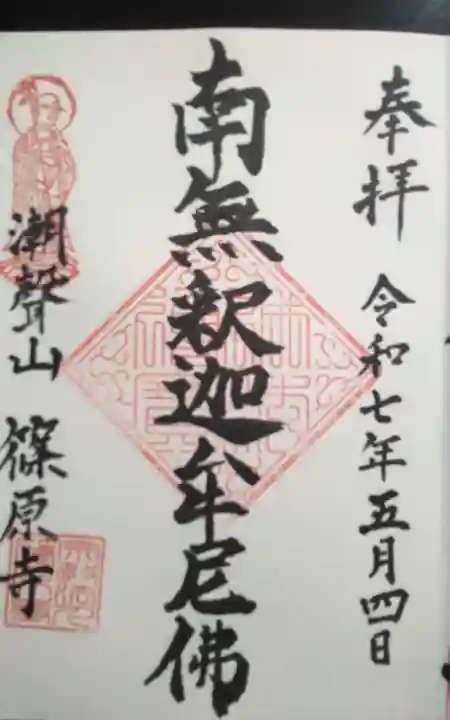 奉拝 令和七年五月四日
南無釈迦牟尼佛
潮聲山 篠原寺